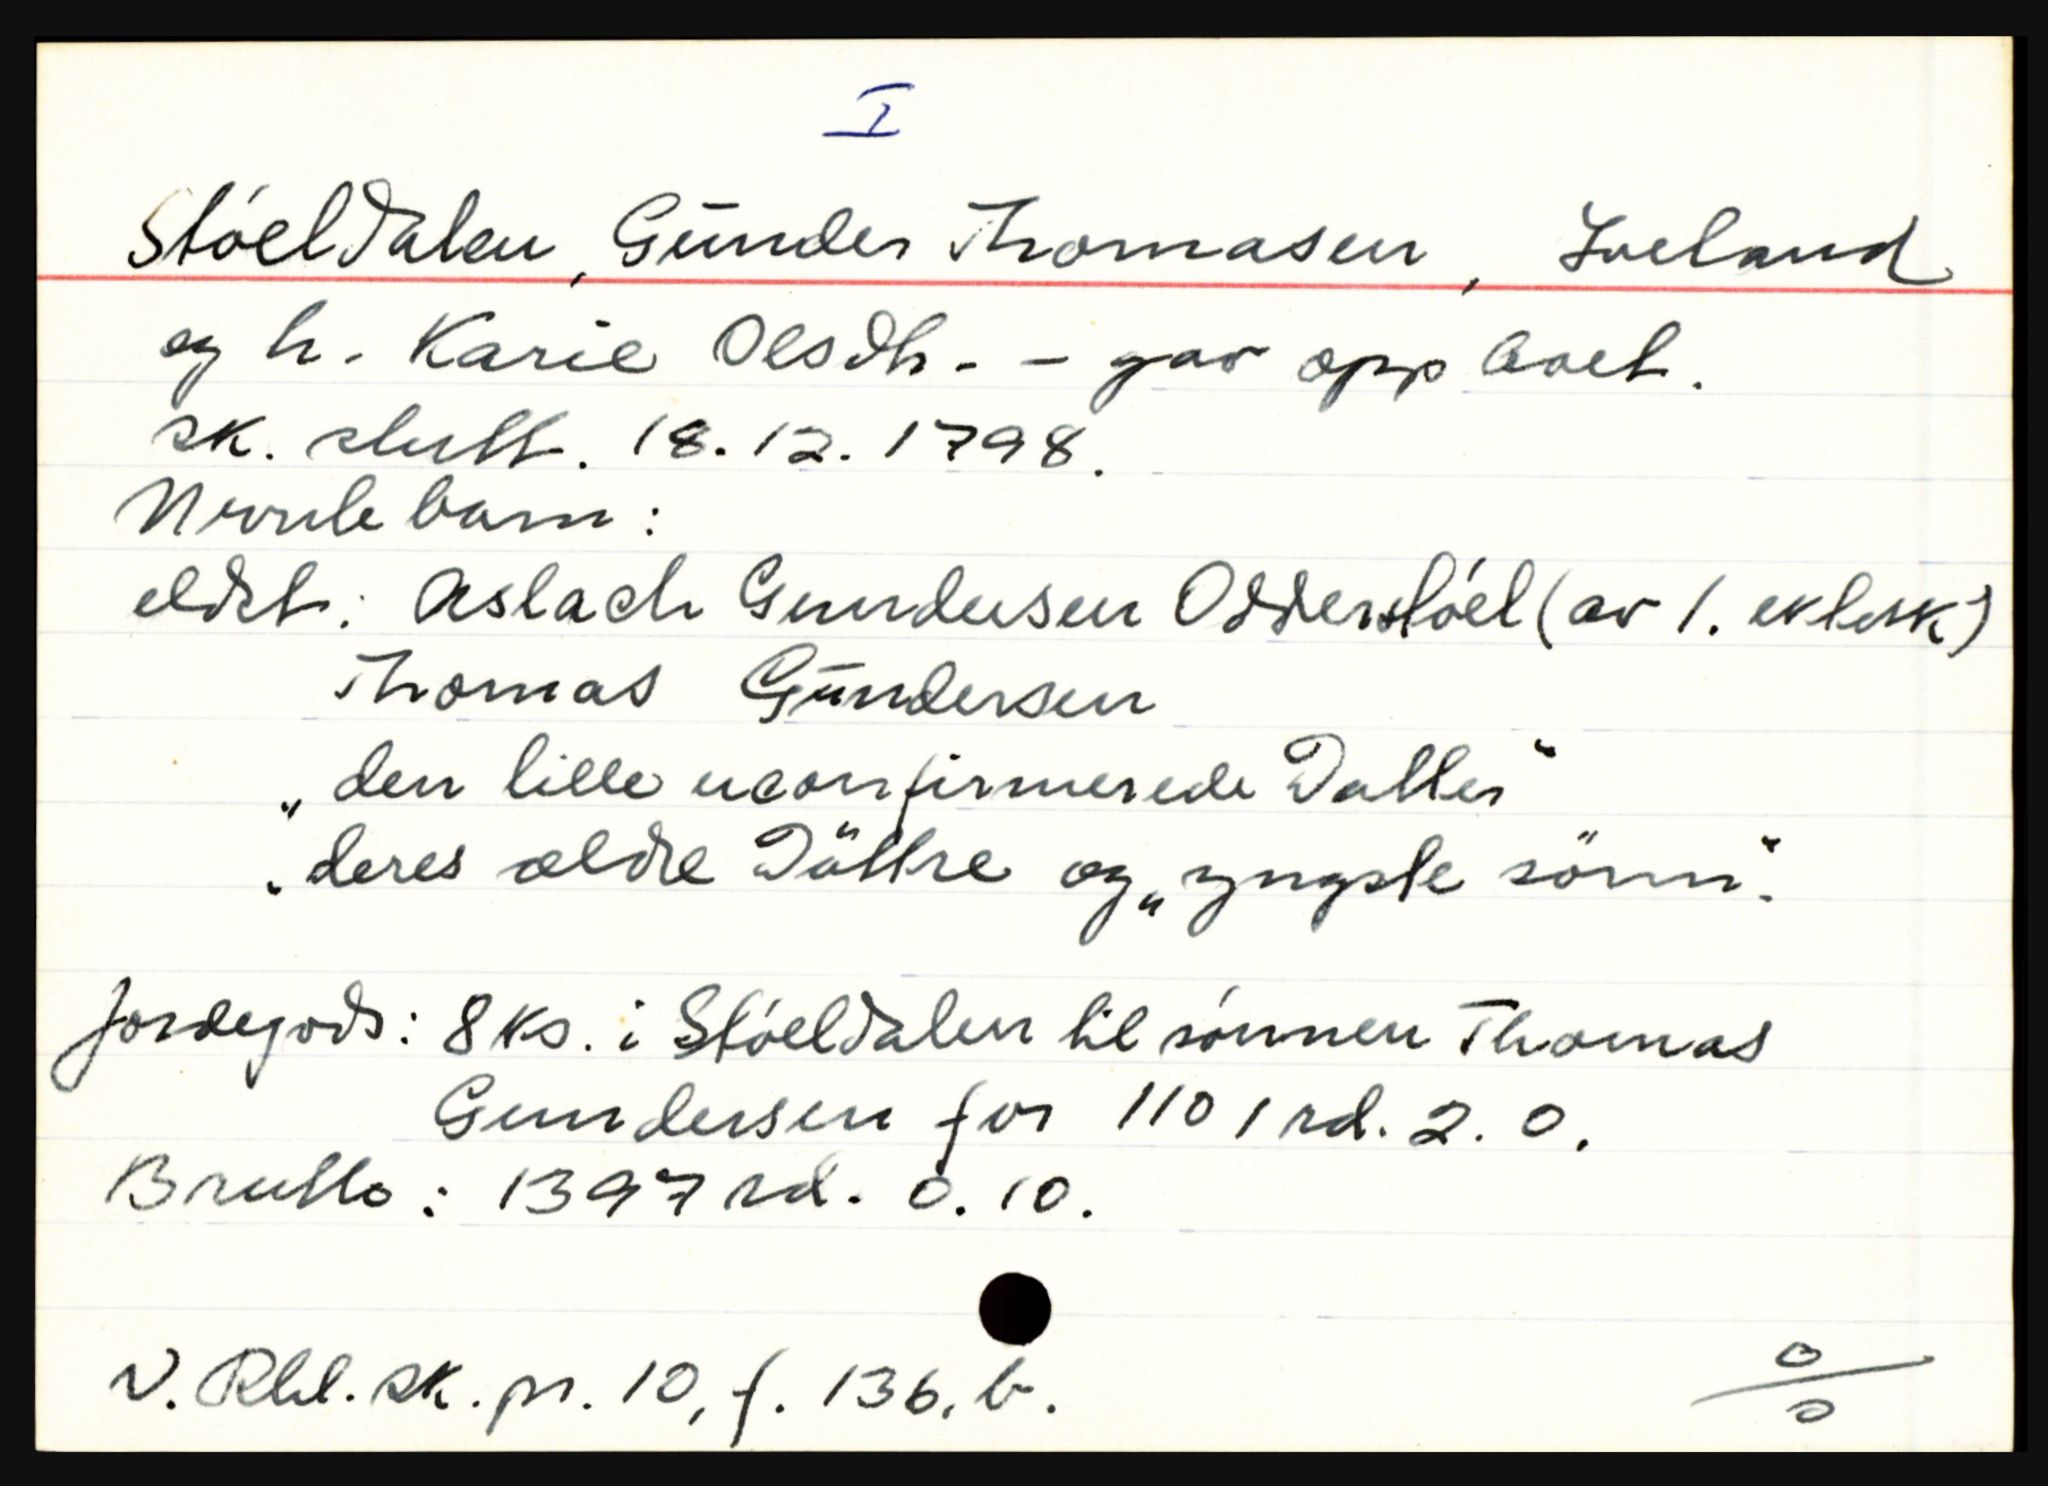 I
Stóeldalen, Gūnder Thomasen, Iveland
og h. Karie Olsdtr. - gav opp boet.
sk. slutt. 18.12.1798.
Nevnte barn:
eldst: Aslach Gundersen Odderstóel (av 1. ektesk)
Thomas Gūndersen
„den lille uconfirmerede Datter"
„deres ældre Döttre og „yngste sönn".
Jordegods: 8 ks. i Stóeldalen til sónnen Thomas
Gundersen for 1101 rd. 2. 0.
Brutto: 1397 rd. 0. 10.
V. Rbl. sk. pr. 10, f. 136. b.